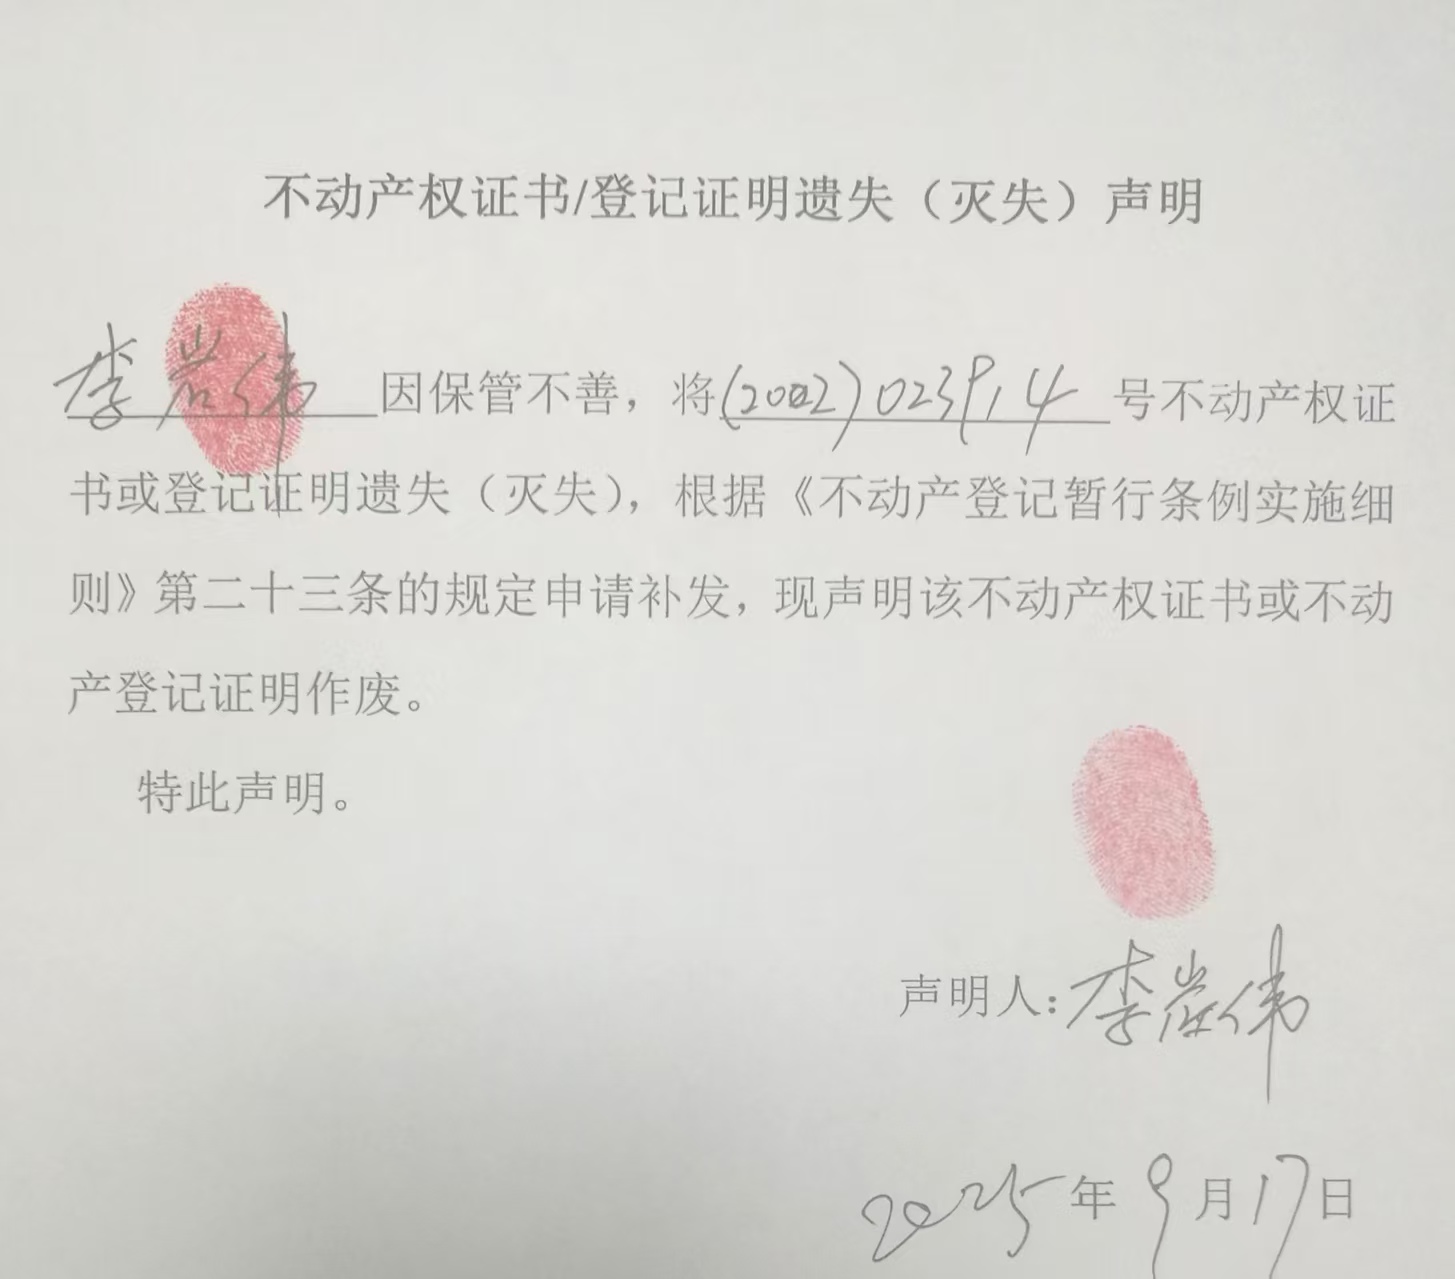 不动产权证书/登记证明遗失（灭失）声明
李岩伟 因保管不善，将(2002)023914号不动产权证
书或登记证明遗失（灭失），根据《不动产登记暂行条例实施细
则》第二十三条的规定申请补发，现声明该不动产权证书或不动
产登记证明作废。
特此声明。
声明人：李岩伟
2025年9月17日